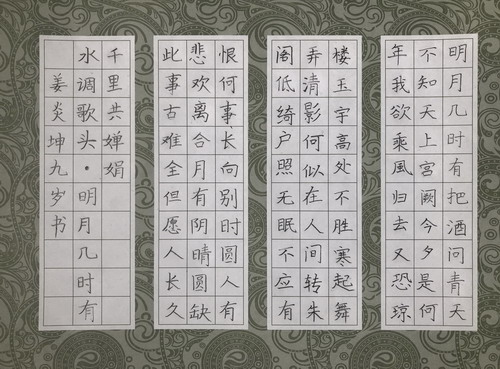 明月几时有把酒问青天
不知天上宫阙今夕是何
年我欲乘風归去又恐琼
楼玉宇高处不胜寒起舞
弄清影何似在人间转朱
阁低绮户照无眠不应有
恨何事长向别时圆人有
悲欢离合月有阴晴圆缺
此事古难全但愿人长久
千里共婵娟
水调歌头·明月几时有
姜炎坤九岁书